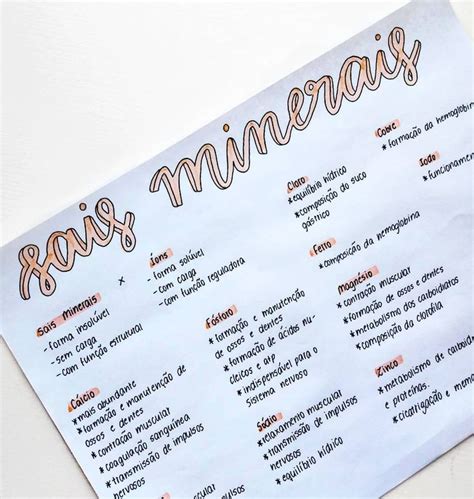 sais minerais
Sais Minerais
- forma insolúvel
- sem carga
- com função estrutural
x
Íons
- forma solúvel
- com carga
- com função reguladora
Cálcio
*mais abundante
*formação e manutenção de
ossos e dentes
*contração muscular
*coagulação sanguínea
*transmissão de impulsos
nervosos
Fósforo
*formação e manutenção
de ossos e dentes
*formação de ácidos nu-
cleicos e atp
*indispensável para o
sistema nervoso
Sódio
*relaxamento muscular
*transmissão de impulsos
nervosos
*equilíbrio hídrico
Cloro
*equilíbrio hídrico
*composição do suco
gástrico
Ferro
*composição da hemoglobina
Magnésio
*contração muscular
*formação de ossos e dentes
*metabolismo dos carboidratos
*composição da clorofila
Zinco
*metabolismo de carboid
e proteínas.
*cicatrização e man
Cobre
*formação da hemoglobina
Iodo
*funcionamen